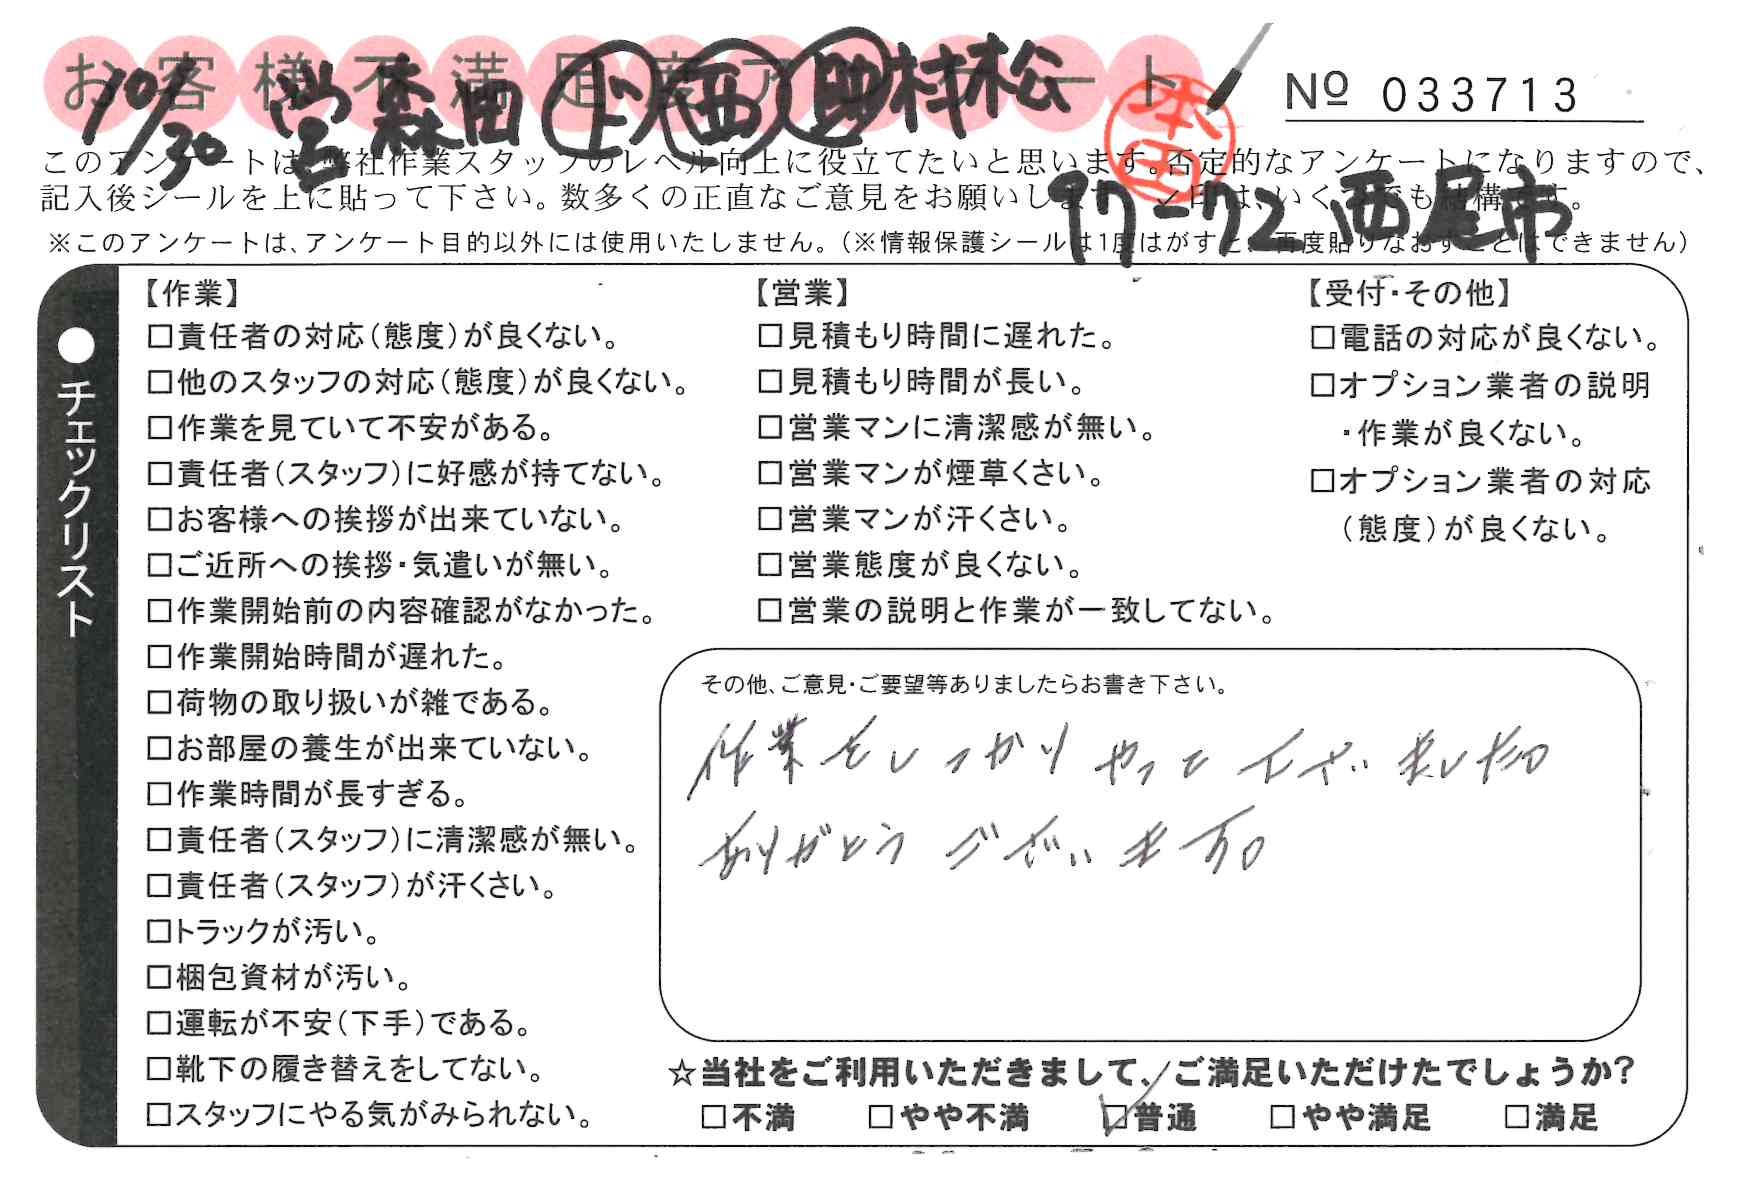 お客様不満足度アンケート
10/30 営森田 上 西 助 村松
本田
Nº 033713
このアンケートは、弊社作業スタッフのレベル向上に役立てたいと思います。否定的なアンケートになりますので、
記入後シールを上に貼って下さい。数多くの正直なご意見をお願いします。✓印は、いくつでも結構です。
97-72 西尾市
※このアンケートは、アンケート目的以外には使用いたしません。(※情報保護シールは1度はがすと、再度貼りなおすことはできません)
●チェックリスト
【作業】
□責任者の対応(態度)が良くない。
□他のスタッフの対応(態度)が良くない。
□作業を見ていて不安がある。
□責任者(スタッフ)に好感が持てない。
□お客様への挨拶が出来ていない。
□ご近所への挨拶・気遣いが無い。
□作業開始前の内容確認がなかった。
□作業開始時間が遅れた。
□荷物の取り扱いが雑である。
□お部屋の養生が出来ていない。
□作業時間が長すぎる。
□責任者(スタッフ)に清潔感が無い。
□責任者(スタッフ)が汗くさい。
□トラックが汚い。
□梱包資材が汚い。
□運転が不安(下手)である。
□靴下の履き替えをしてない。
□スタッフにやる気がみられない。
【営業】
□見積もり時間に遅れた。
□見積もり時間が長い。
□営業マンに清潔感が無い。
□営業マンが煙草くさい。
□営業マンが汗くさい。
□営業態度が良くない。
□営業の説明と作業が一致してない。
【受付・その他】
□電話の対応が良くない。
□オプション業者の説明
・作業が良くない。
□オプション業者の対応
(態度)が良くない。
その他、ご意見・ご要望等ありましたらお書き下さい。
作業をしっかりやって下さいました。
ありがとうございます。
☆当社をご利用いただきまして、ご満足いただけたでしょうか?
□不満 □やや不満 ☑普通 □やや満足 □満足